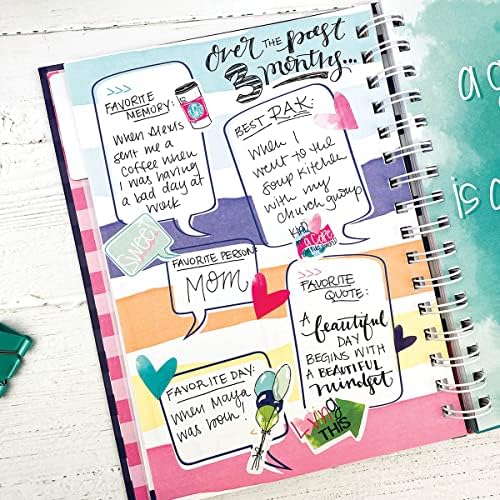 over THE past
3 months...
FAVORITE
MEMORY:
When Alexis
sent me a
coffee when
I was having
a bad day at
work
BEST RAK:
When I
went to the
soup kitchen
with my
church group
SWEET
FAVORITE PERSON:
MOM
FAVORITE
QUOTE:
A beautiful
DAY
BEGINS WITH
A BEAUTIFUL
mindset
FAVORITE DAY:
When Maya
was born!
Lovin
THIS
a
is a